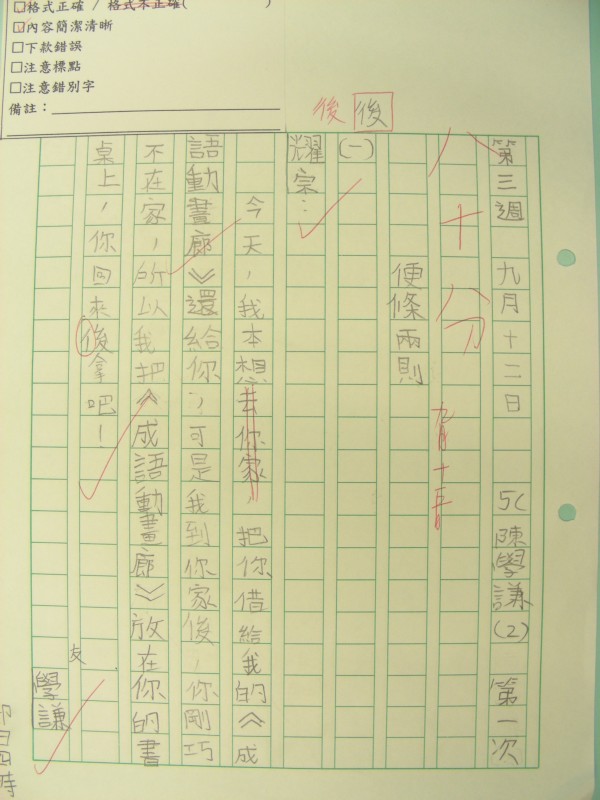 □格式正確 / 格式不正確( )
□內容簡潔清晰
□下款錯誤
□注意標點
□注意錯別字
備註：
後 後
第三週 九月十二日 5C 陳學謙(2) 第一次
八十八分
九月十五日
便條兩則
(一)
耀宗：
今天，我本想去你家，把你借給我的《成
語動畫廊》還給你，可是我到你家後，你剛巧
不在家，所以我把《成語動畫廊》放在你的書
桌上，你回來後拿吧！
友
學謙
即日四時